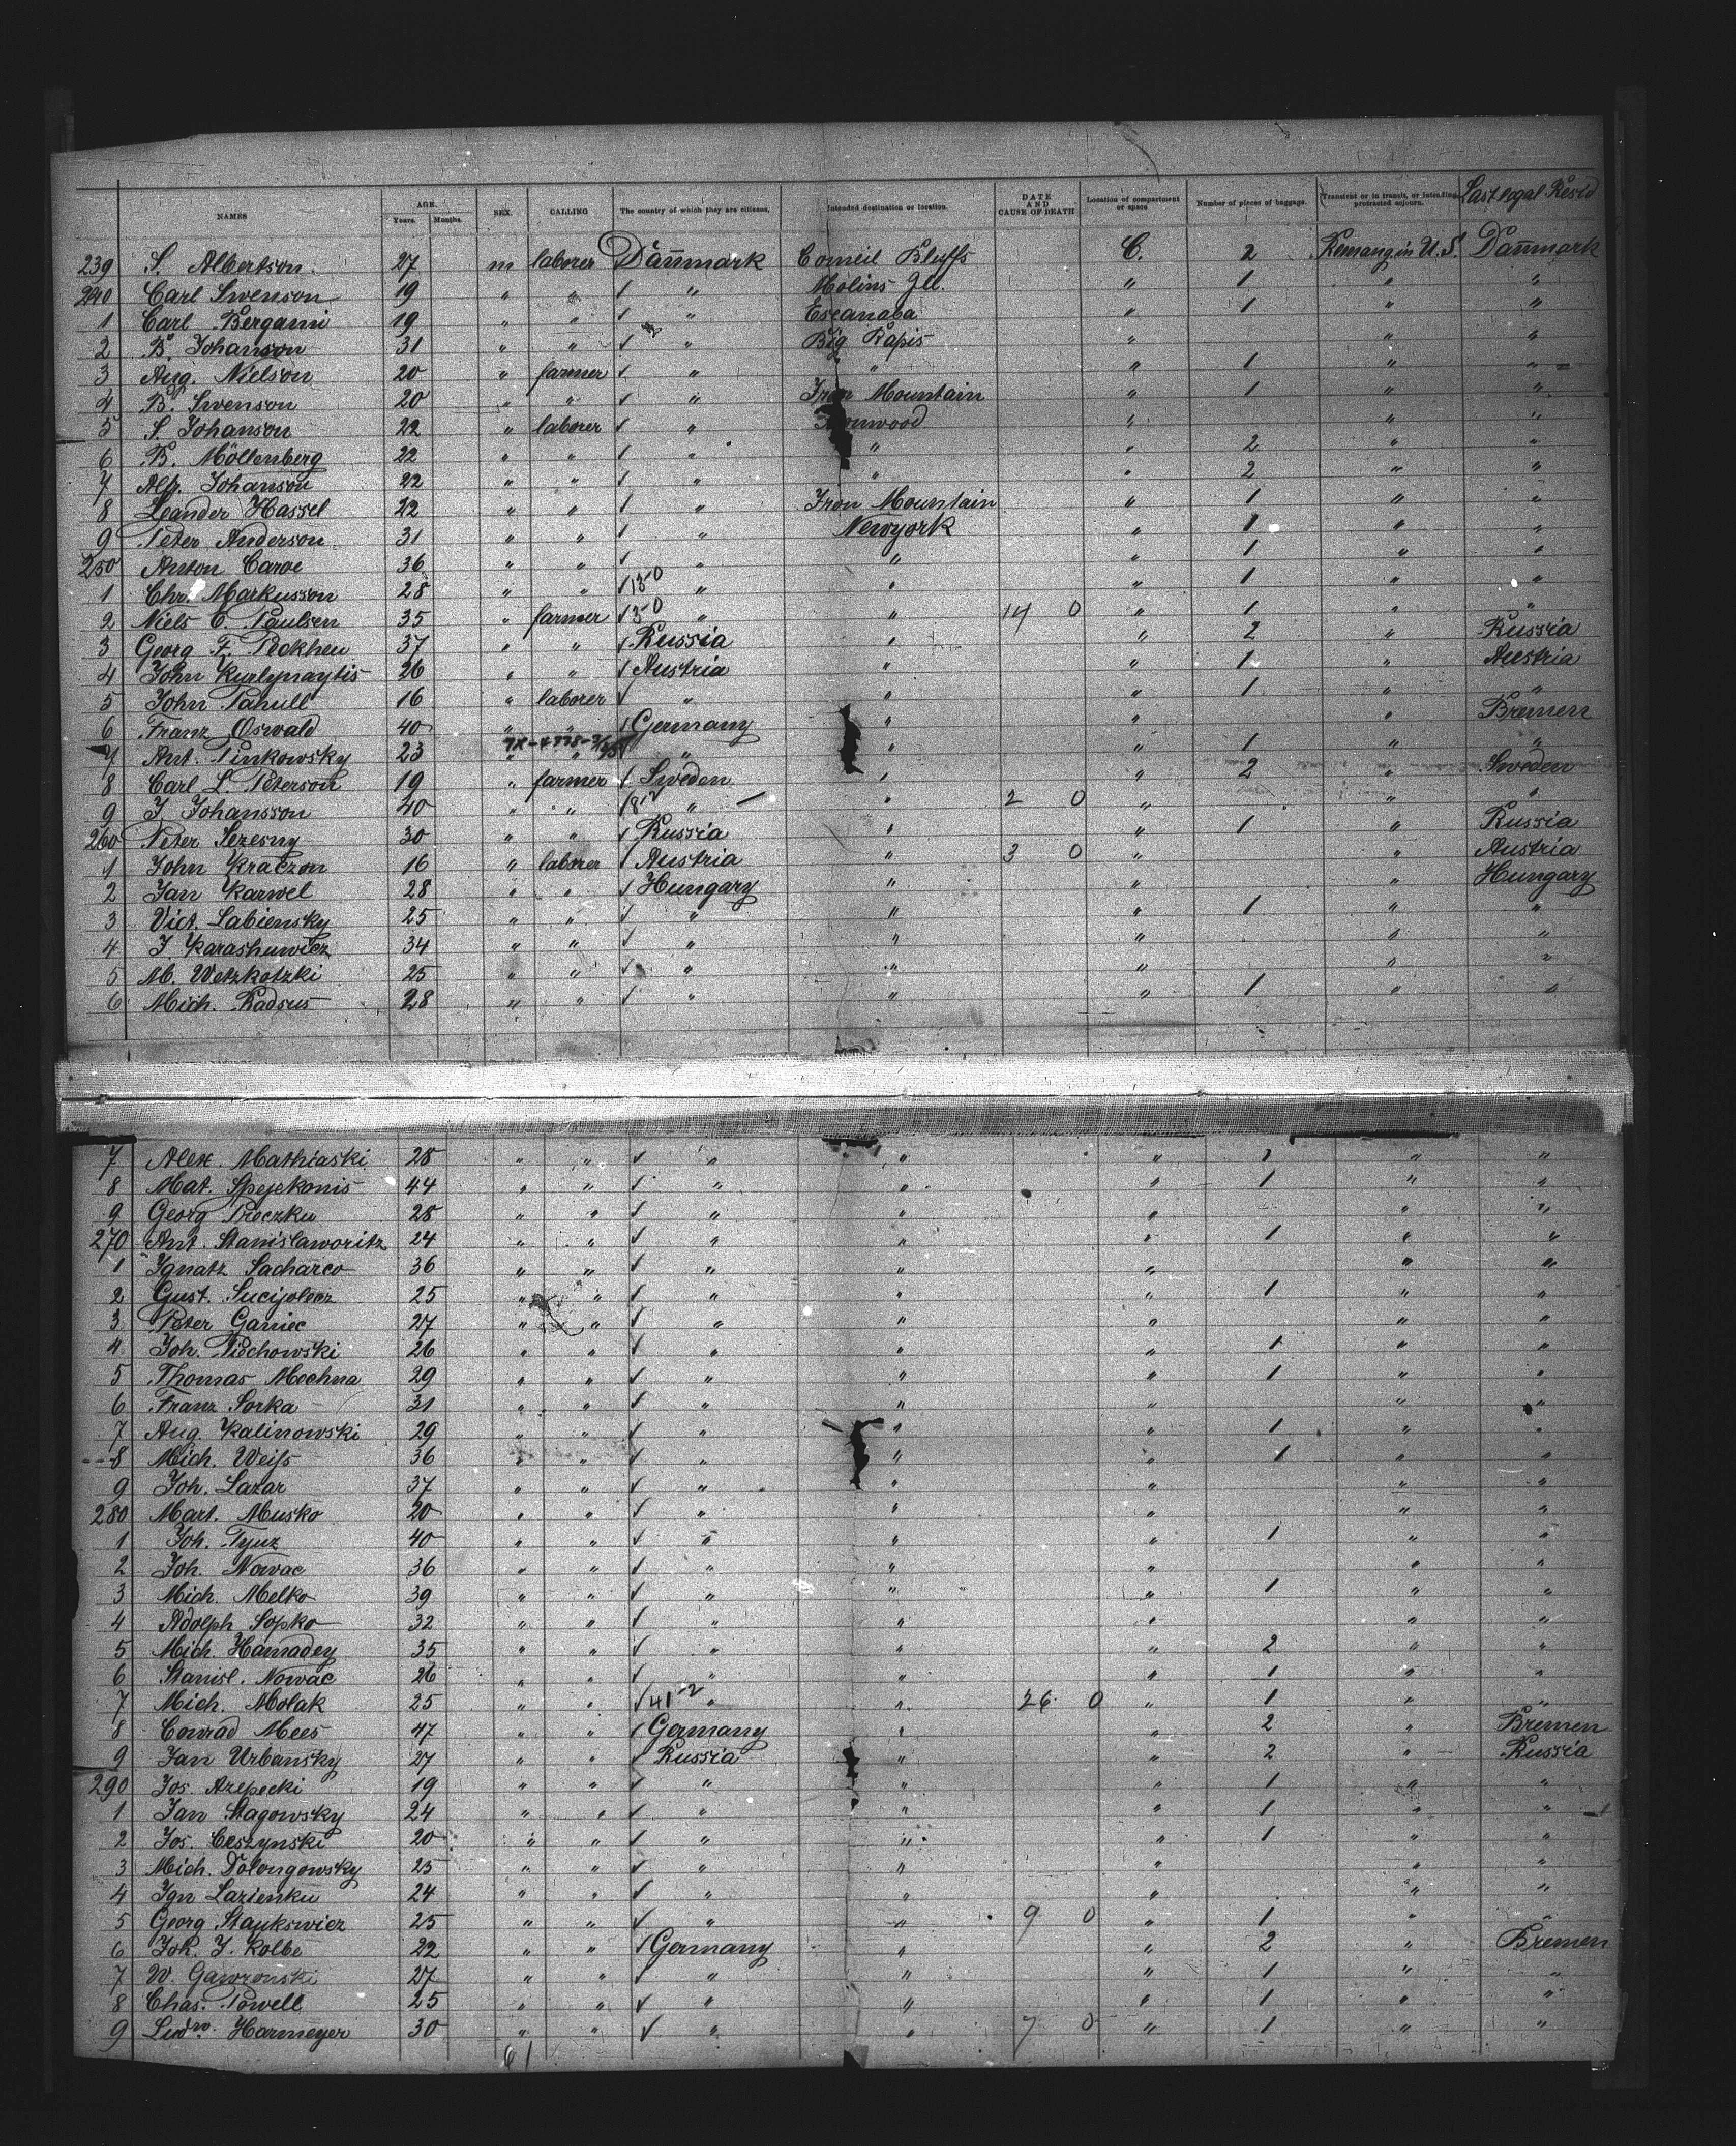 NAMES AGE. Years. Months. SEX. CALLING The country of which they are citizens. Intended destination or location. DATE AND CAUSE OF DEATH Location of compartment or space Number of pieces of baggage. Transient or in transit, or intending protracted sojourn. Last legal Resid
239 S. Albertson. 27 m laborer Dänmark Comeil Bluffs C. 2 Remang in U.S. Danmark
240 Carl Swenson 19 " " ✓ " Molins Ill. " 1 " "
1 Carl Bergami 19 " " ✓ " Escanaba " 1 " "
2 B. Johanson 31 " " ✓ " Big Rapis " " "
3 Aug. Nielson 20 " farmer ✓ " " " 1 " "
4 B. Swenson 20 " " ✓ " Iron Mountain " 1 " "
5 S. Johanson 22 " laborer ✓ " Ironwood " " "
6 B. Möllenberg 22 " " ✓ " " " 2 " "
7 Alfr. Johanson 22 " " ✓ " " " 2 " "
8 Leander Hassel 22 " " ✓ " Iron Mountain " 1 " "
9 Peter Anderson 31 " " ✓ " Newyork " 1 " "
250 Anton Caroe 36 " " ✓ " " " 1 " "
1 Chr. Markusson 28 " " ✓ " " " 1 " "
2 Niels C. Paulsen 35 " farmer ✓ " " 14 0 " 1 " "
3 Georg F. 37 " " ✓ Russia " " 2 " Russia
4 John 26 " " ✓ Austria " " 1 " Austria
5 John Pahull 16 " laborer ✓ " " " 1 " "
6 Franz Oswald 40 " " ✓ Germany " " " Bremen
7 Ant. Pinkowsky 23 " " " " " 1 " "
8 Carl L. Peterson 19 " farmer ✓ Sweden " " 2 " Sweden
9 J. Johansson 40 " " ✓ " " 2 0 " " "
260 Peter Sezesny 30 " " ✓ Russia " " 1 " Russia
1 John Kraczon 16 " laborer ✓ Austria " 3 0 " " Austria
2 Jan Karwel 28 " " ✓ Hungary " " " Hungary
3 Vict. Labiensky 25 " " ✓ " " " 1 " "
4 J. Karashuwicz 34 " " ✓ " " " " "
5 M. Wetzkotzki 25 " " ✓ " " " " "
6 Mich. Radsus 28 " " ✓ " " " 1 " "
7 Alex. Mathiaski 28 " " ✓ " " " 1 " "
8 Mat. Spejekonis 44 " " ✓ " " " 1 " "
9 Georg Preczku 28 " " ✓ " " " " "
270 Ant. Stanislaworitz 24 " " ✓ " " " 1 " "
1 Ignatz Sacharco 36 " " ✓ " " " " "
2 Gust. 25 " " ✓ " " " 1 " "
3 Peter Ganiec 27 " " ✓ " " " " "
4 Joh. Piechowski 26 " " ✓ " " " 1 " "
5 Thomas Mochna 29 " " ✓ " " " 1 " "
6 Franz Sorka 31 " " ✓ " " " " "
7 Aug. Kalinowski 29 " " ✓ " " " 1 " "
8 Mich. Weifs 36 " " ✓ " " " 1 " "
9 Joh. Lazar 37 " " ✓ " " " " "
280 Mart. Musko 20 " " ✓ " " " " "
1 Joh. Tyuz 40 " " ✓ " " " 1 " "
2 Joh. Nowac 36 " " ✓ " " " " "
3 Mich. Melko 39 " " ✓ " " " 1 " "
4 Adolph Sopko 32 " " ✓ " " " " "
5 Mich. Hamadey 35 " " ✓ " " " 2 " "
6 Stanisl. Nowac 26 " " ✓ " " " 1 " "
7 Mich. Molak 25 " " ✓ " " 26 0 " 1 " "
8 Conrad Mees 47 " " ✓ Germany " " 2 " Bremen
9 Jan Urbansky 27 " " ✓ Russia " " 2 " Russia
290 Jos. Azepecki 19 " " ✓ " " " 1 " "
1 Jan Stagowsky 24 " " ✓ " " " 1 " "
2 Jos. Ceszynski 20 " " ✓ " " " 1 " "
3 Mich. Dolongowsky 25 " " ✓ " " " " "
4 Ign Lazienku 24 " " ✓ " " " " "
5 Georg Staukswicz 25 " " ✓ " " 9 0 " 1 " "
6 Joh. J. Kolbe 22 " " ✓ Germany " " 2 " Bremen
7 W. Gawronski 27 " " ✓ " " " 1 " "
8 Chas. Powell 25 " " ✓ " " " 1 " "
9 Ludw. Harmeyer 30 " " ✓ " " 7 0 " 1 " "
61